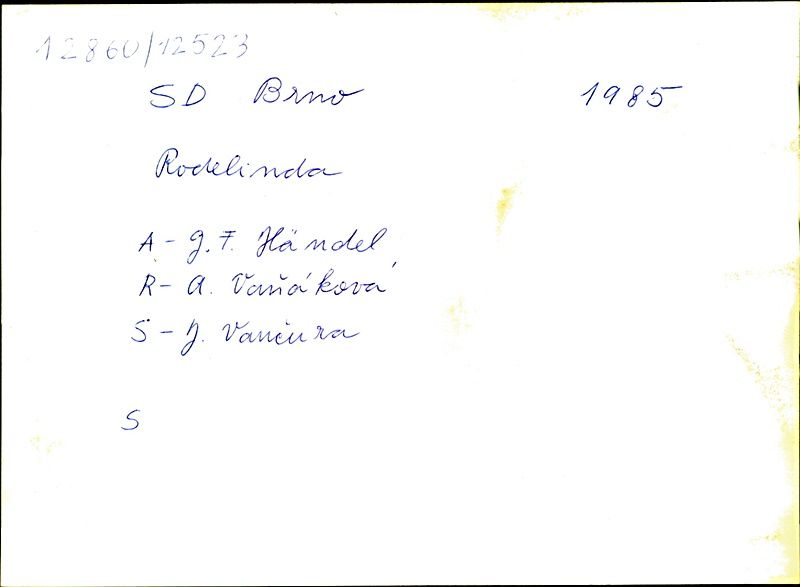 12860/12523
SD Brno 1985
Rodelinda
A - G. F. Händel
R - A. Vaňáková
S - J. Vančura
S